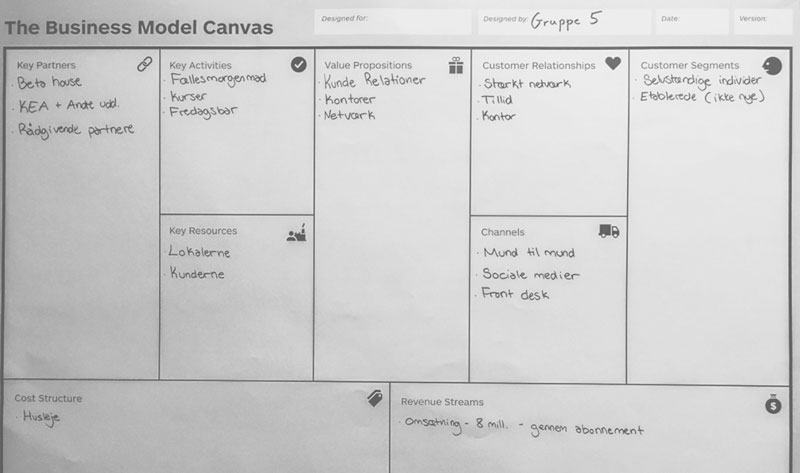 The Business Model Canvas
Designed for:
Designed by:
Gruppe 5
Date:
Version:
Key Partners
· Beta house
· KEA + Andre udd.
· Rådgivende partnere
Key Activities
· Fællesmorgenmad
· Kurser
· Fredagsbar
Key Resources
· Lokalerne
· Kunderne
Value Propositions
· Kunde Relationer
· Kontorer
· Netværk
Customer Relationships
· Stærkt netværk
· Tillid
· Kontor
Channels
· Mund til mund
· Sociale medier
· Front desk
Customer Segments
· Selvstændige individer
· Etablerede (ikke nye)
Cost Structure
· Husleje
Revenue Streams
· Omsætning - 8 mill. - gennem abonnement